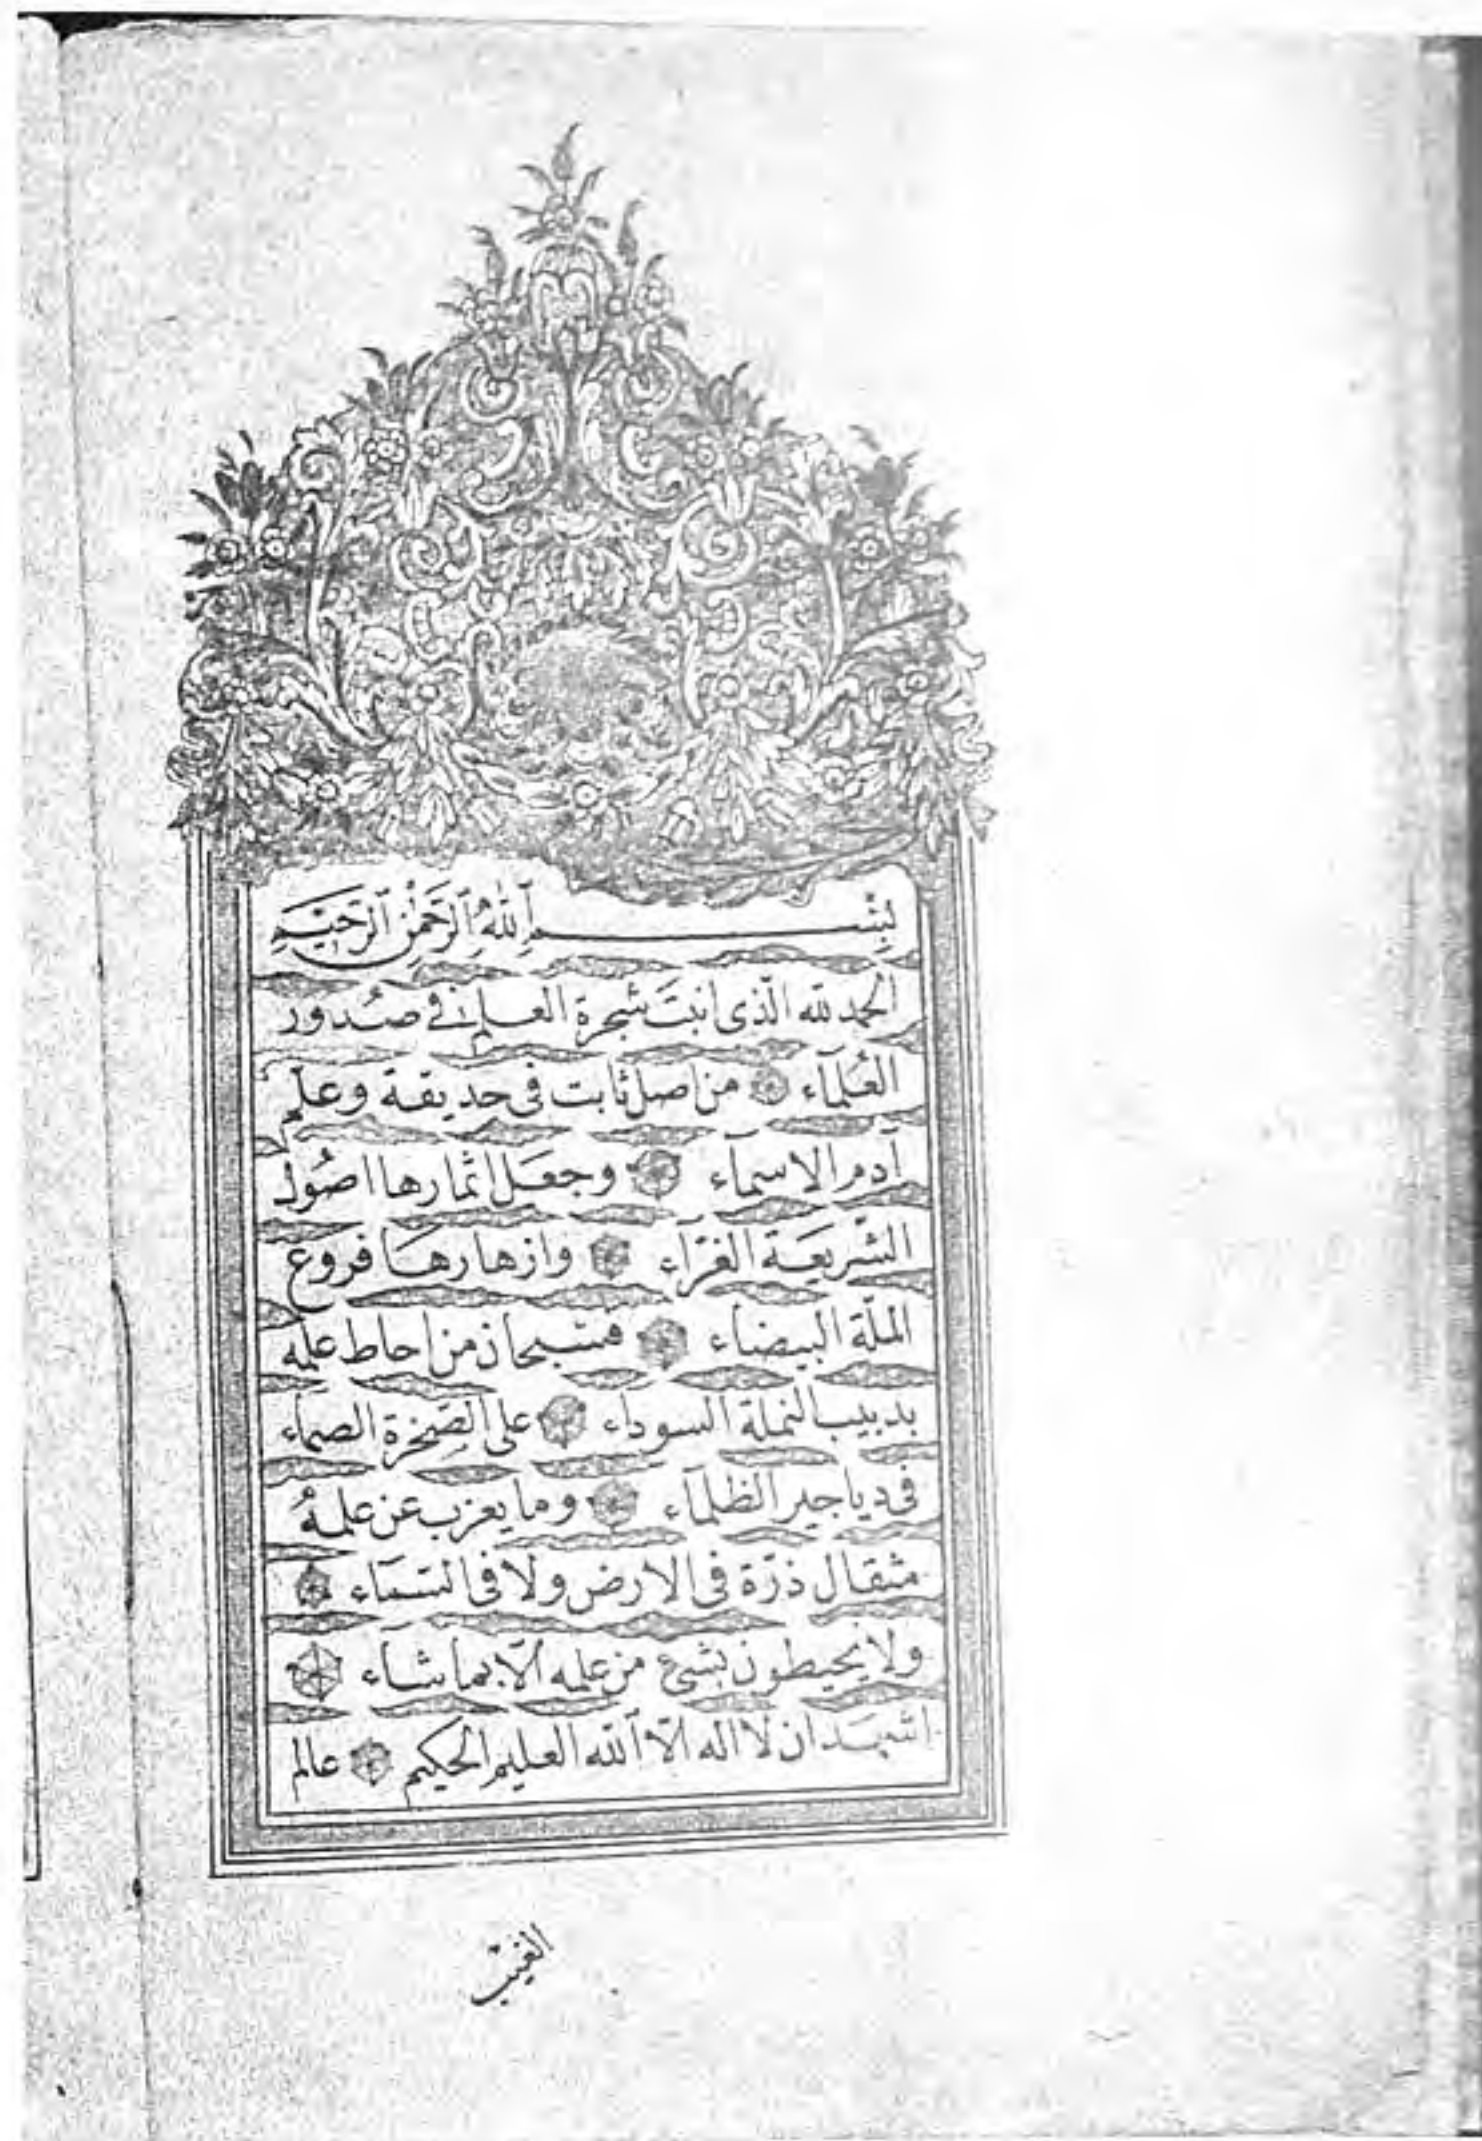 بِسْمِ ٱللّٰهِ ٱلرَّحْمٰنِ ٱلرَّحِيْمِ
الحمد لله الّذى انبت شجرة العلم فى صُدور
العُلمآء من اصل ثابت فى حديقة وعلّم
آدم الاسمآء وجعَل اثمارها اصُول
الشّريعَة الغرّآء وازهارهَا فروع
الملّة البيضاء فسُبحان من احاط علمه
بدبيب النملة السوداء على الصّخرة الصماء
فى دياجير الظلمآء وما يعزب عن علمهُ
مثقال ذرّة فى الارض ولا فى السّمآء
ولا يحيطون بشئ من علمه الّا بما شآء
اشهَد ان لا اله الّا ٱللّه العليم الحكيم عالم
الغيْب